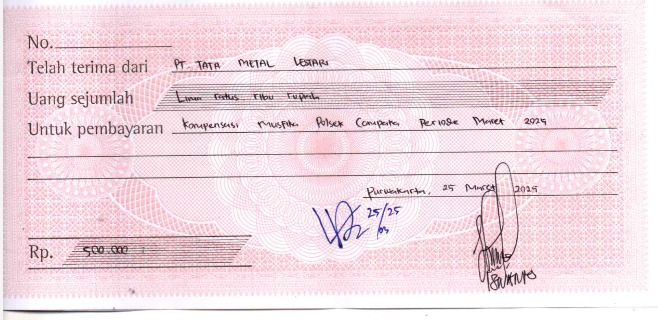 No.
Telah terima dari PT. TATA METAL LESTARI
Uang sejumlah Lima ratus ribu rupiah
Untuk pembayaran Kompensasi Muspika Polsek Campaka Periode Maret 2025
Purwakarta, 25 Maret 2025
25/25
03
Rp. 500.000